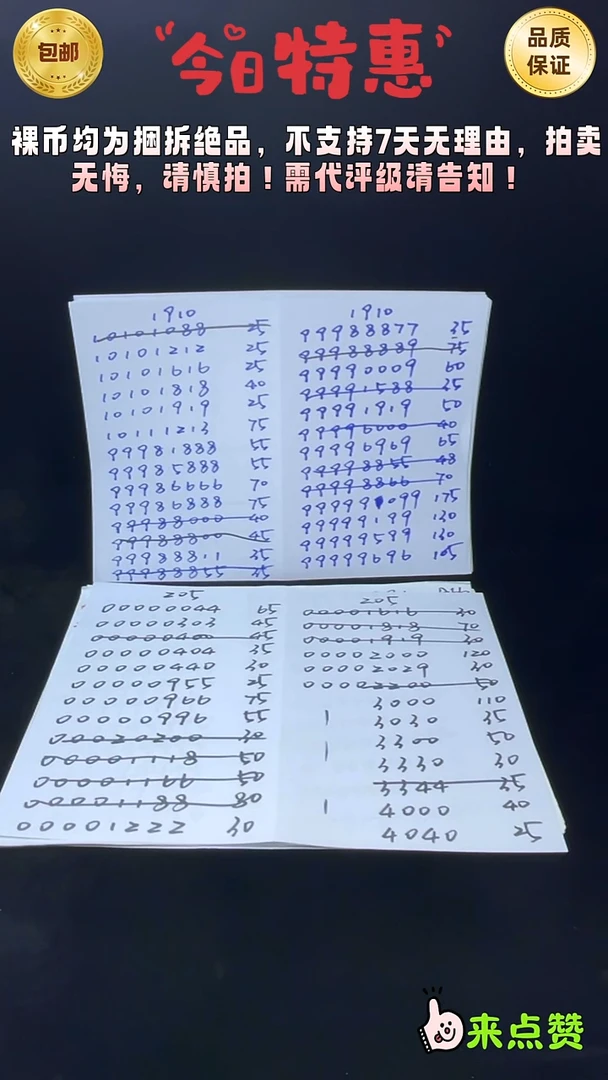 包邮
今日特惠
品质
保证
裸币均为捆拆绝品，不支持7天无理由，拍卖
无悔，请慎拍！需代评级请告知！
1910
10101088 25
10101212 25
10101616 25
10101818 40
10101919 25
10111213 75
99981888 55
99985888 55
99986666 70
99986888 75
99988000 40
99988800 45
99988811 35
99988855 35
1910
99988877 35
99988889 75
99990009 60
99991588 35
99991919 50
99996000 40
99996969 65
99998855 48
99998866 70
99999099 175
99999199 130
99999599 130
99999696 105
205
00000044 65
00000303 45
00000400 45
00000404 35
00000440 30
00000955 25
00000966 75
00000996 55
00020200 30
00001118 50
00001166 50
00001188 80
00001222 30
205
00001616 30
00001818 70
00001919 30
00002000 120
00002029 30
00002200 50
3000 110
3030 35
3300 50
3330 30
3344 35
4000 40
4040 25
来点赞